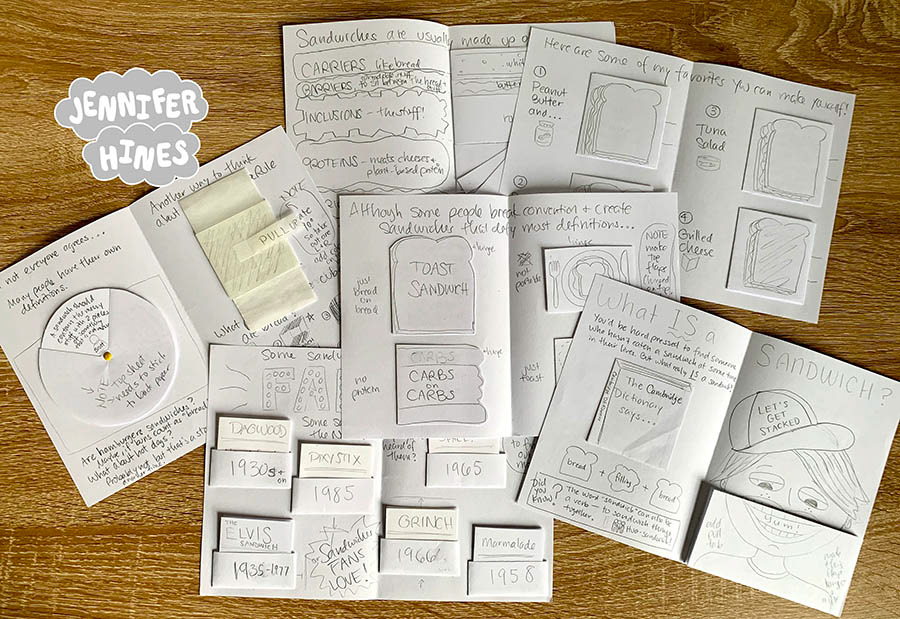 JENNIFER
HINES
Sandwiches are usually made up of
CARRIERS like bread
BARRIERS
to sit between the bread +
INCLUSIONS - the stuff!
PROTEINS - meats cheeses +
plant-based protein
Here are some of my favorites You can make yourself!
①
Peanut
Butter
and...
②
③
Tuna
Salad
④ Grilled
Cheese
Another way to think
about
Rule
PULL UP
not everyone agrees...
Many people have their own
definitions.
A sandwich should
NOTE
top sheet
needs to stick
to back paper
Are hamburgers sandwiches?
Maybe, if buns count as "bread"
What about hot dogs?
Probably not but that's a
Although some people break convention + create
sandwiches that defy most definitions...
TOAST
SANDWICH
just
bread
on
bread
hinge
not
portable
NOTE
make
top
flaps
CARBS
CARBS
on
CARBS
no
protein
hinge
just
toast
Some Sandw
DAGWOOD
1930s +
on
PIXY STIX
1985
SPACE!
1965
THE
ELVIS
SANDWICH
1935-1977
Sandwiches
FANS
LOVE!
GRINCH
1966
Marmalade
1958
What IS a
SANDWICH?
You'd be hard pressed to find someone
who hasn't eaten a sandwich at some time
in their lives. But what really IS a sandwich?
The Cambridge
Dictionary
says...
bread + filling + bread
Did
you
know?
The word "sandwich" can also be
a verb - to sandwich things
together.
LET'S
GET
STACKED
Yum!
add
pull
tab
make
this